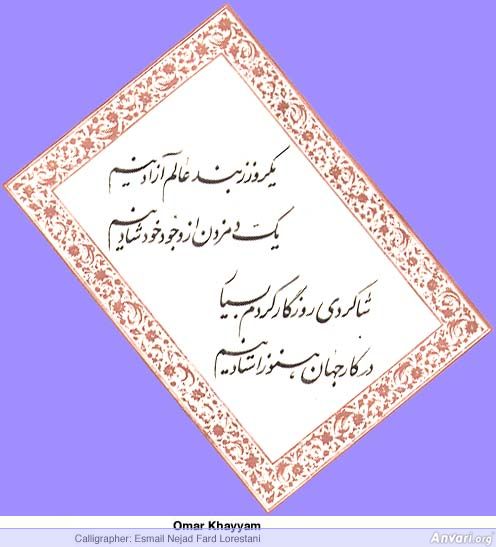 یکروز ز بند عالم آزاد نیم
یک دمزدن از وجود خود شاد نیم
شاگردی روزگار کردم بسیار
در کار جهان هنوز استاد نیم
Omar Khayyam
Calligrapher: Esmail Nejad Fard Lorestani
Anvari.org